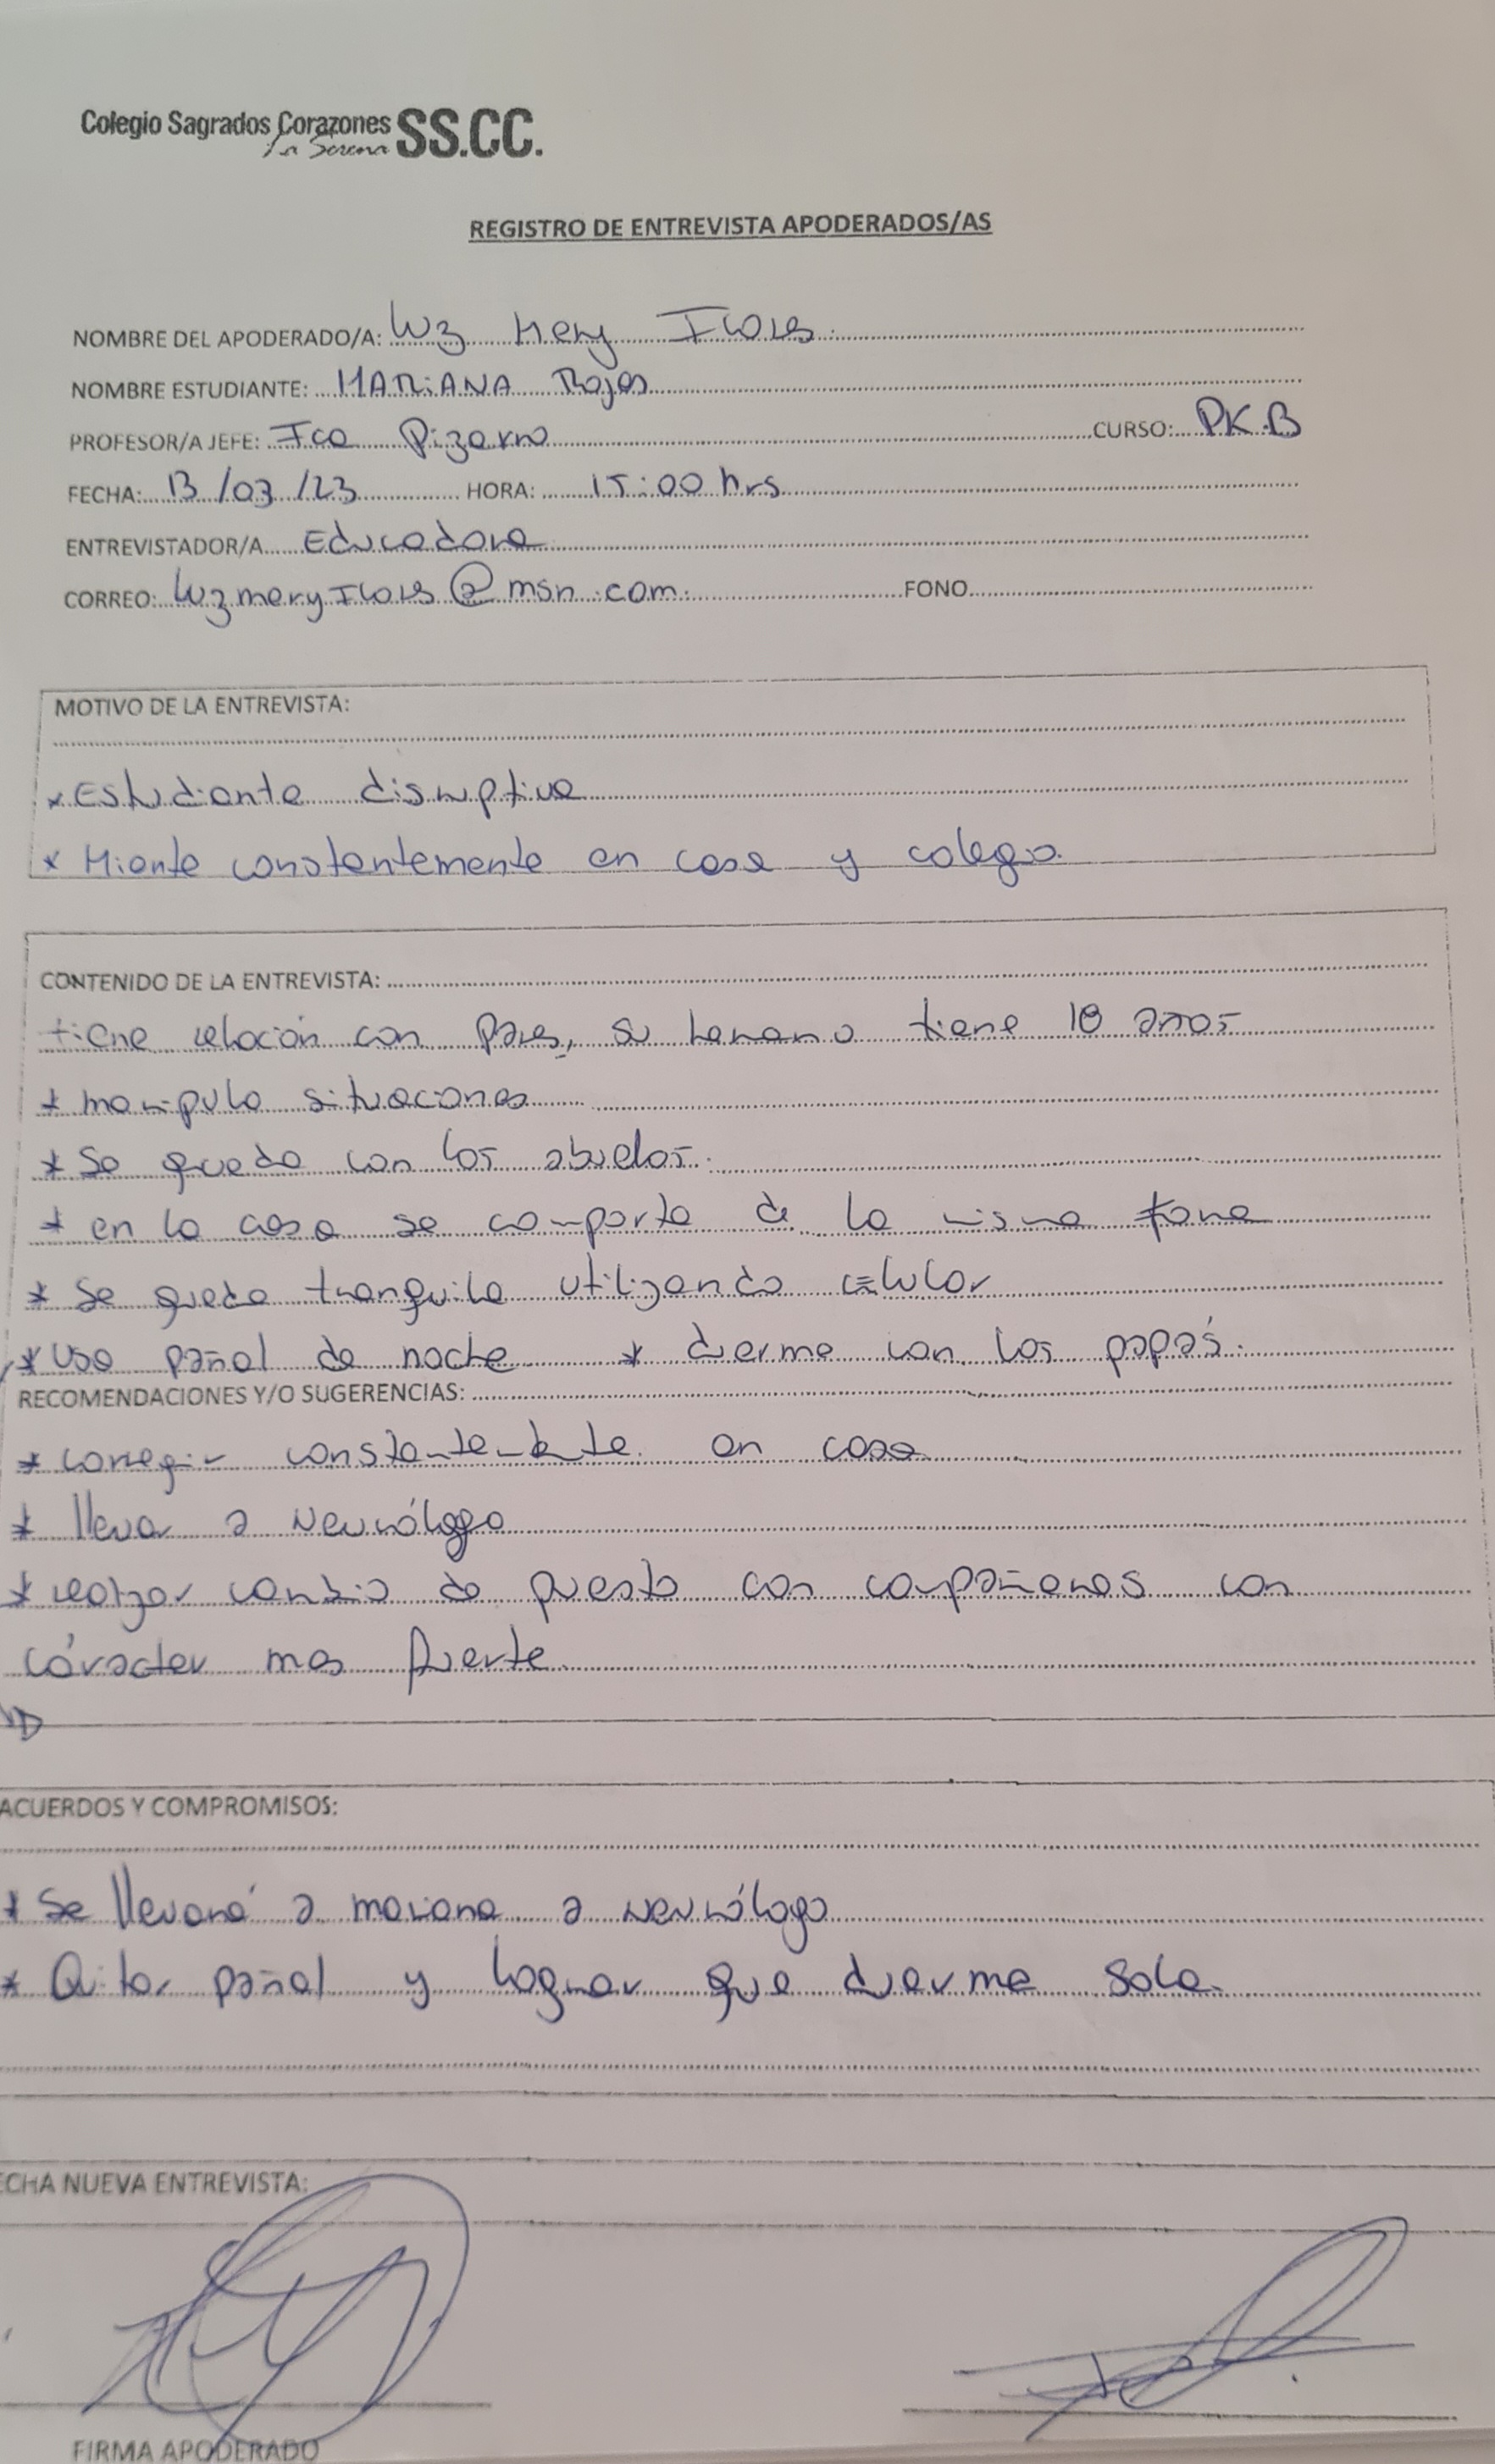 Colegio Sagrados Corazones SS.CC.
La Serena
REGISTRO DE ENTREVISTA APODERADOS/AS
NOMBRE DEL APODERADO/A: Luz Mery Flores
NOMBRE ESTUDIANTE: MARiANA Rojas
PROFESOR/A JEFE: Fca Pizarro CURSO: PK.B
FECHA: 13/03/23 HORA: 15:00 hrs
ENTREVISTADOR/A Educadora
CORREO: luzmeryflores@msn.com. FONO
MOTIVO DE LA ENTREVISTA:
* Estudiante disruptiva
* Miente constantemente en casa y colegio.
CONTENIDO DE LA ENTREVISTA:
tiene relación con pares, su hermano tiene 18 años
* manipula situaciones
* Se queda con los abuelos.
* en la casa se comporta de la misma forma
* Se queda tranquila utilizando celular
* Usa pañal de noche * duerme con los papás.
RECOMENDACIONES Y/O SUGERENCIAS:
* corregir constantemente en casa
* llevar a Neurólogo
* realizar cambio de puesto con compañeros con
carácter mas fuerte
ACUERDOS Y COMPROMISOS:
* Se llevará a mariana a neurólogo
* Quitar pañal y lograr que duerma sola.
ECHA NUEVA ENTREVISTA:
FIRMA APODERADO